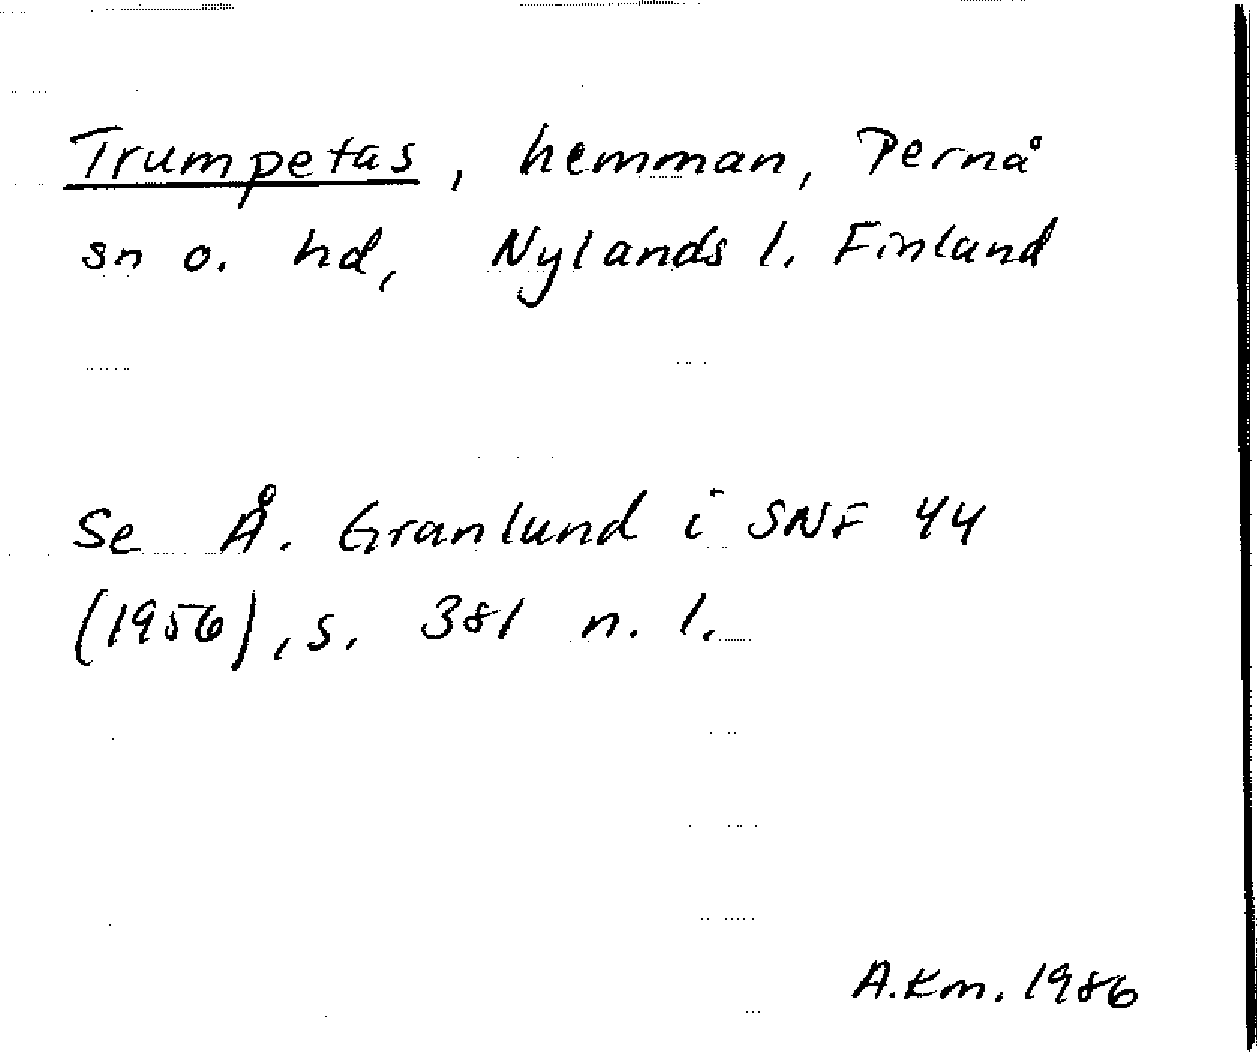 Trumpetas, hemman, Pernå
sn o. hd, Nylands l. Finland
Se Å. Granlund i SNF 44
(1956), s. 381 n. l.
A.Km. 1986